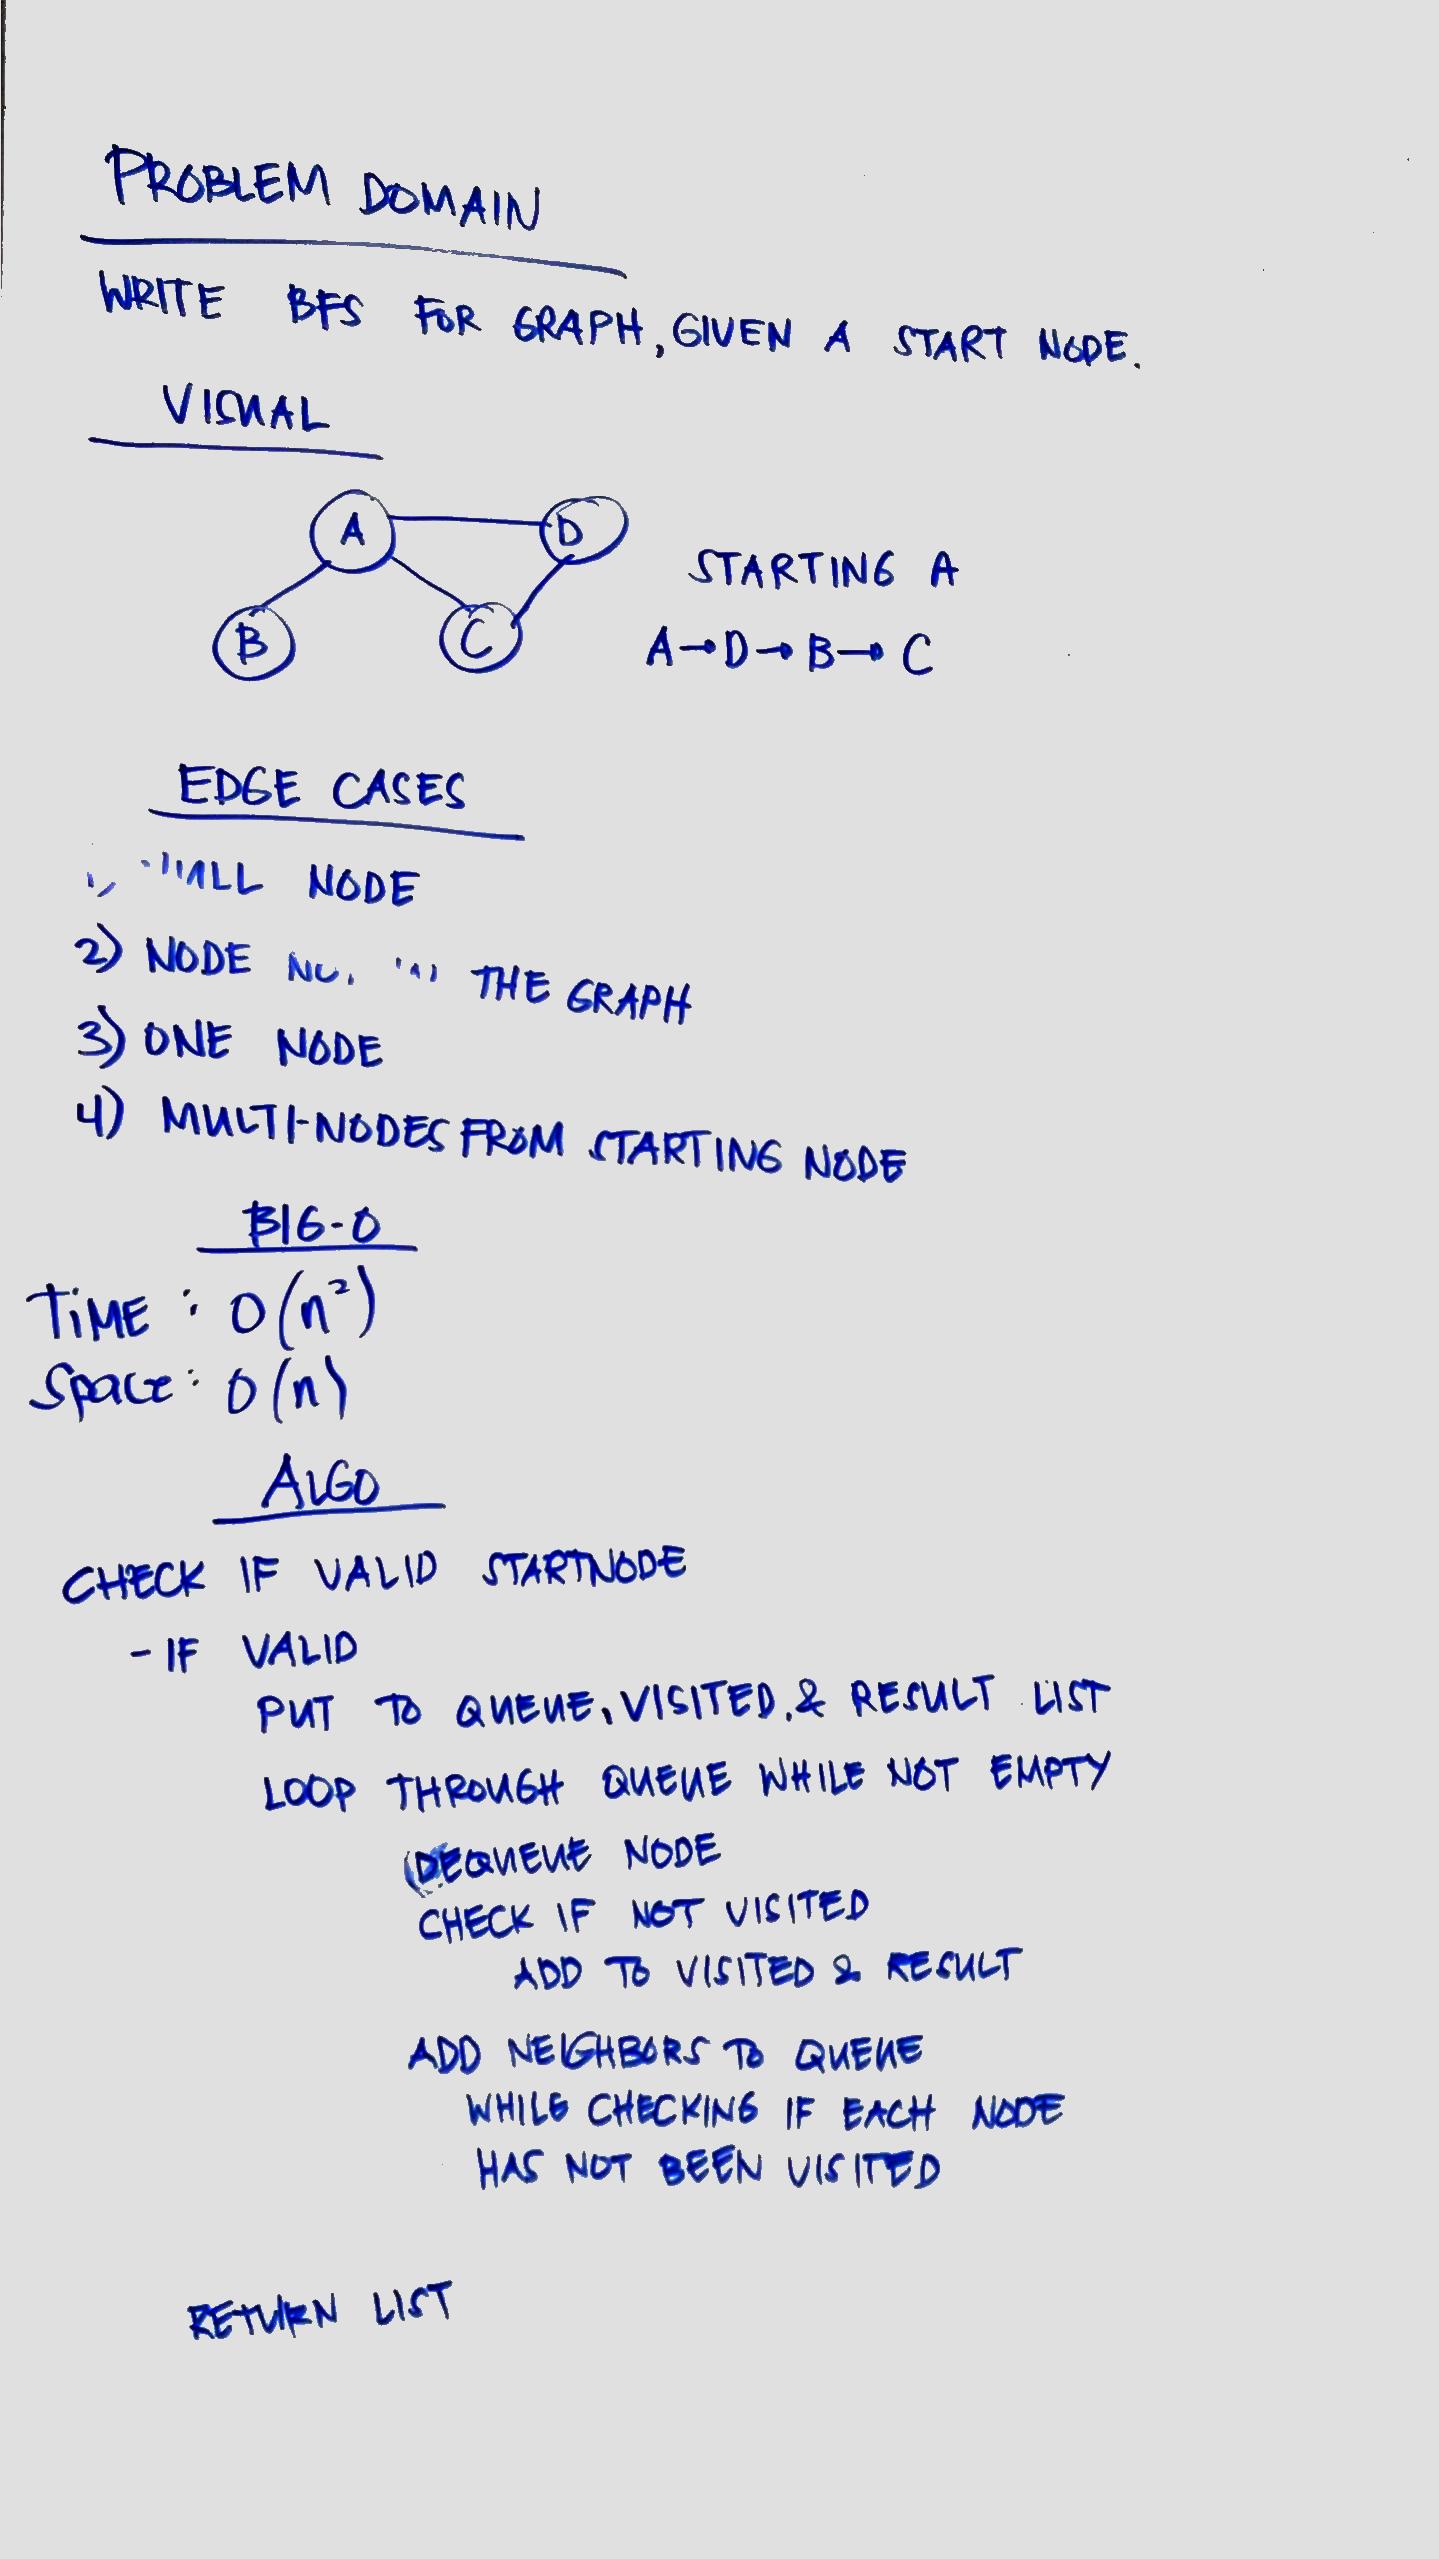 PROBLEM DOMAIN
WRITE BFS FOR GRAPH, GIVEN A START NODE.
VISUAL
A D
B C
STARTING A
A→D→B→C
EDGE CASES
NODE
2) NODE THE GRAPH
3) ONE NODE
4) MULTI-NODES FROM STARTING NODE
BIG-O
TiME: O(n²)
Space: O(n)
ALGO
CHECK IF VALID STARTNODE
- IF VALID
PUT TO QUEUE, VISITED, & RESULT LIST
LOOP THROUGH QUEUE WHILE NOT EMPTY
DEQUEUE NODE
CHECK IF NOT VISITED
ADD TO VISITED & RESULT
ADD NEIGHBORS TO QUEUE
WHILE CHECKING IF EACH NODE
HAS NOT BEEN VISITED
RETURN LIST